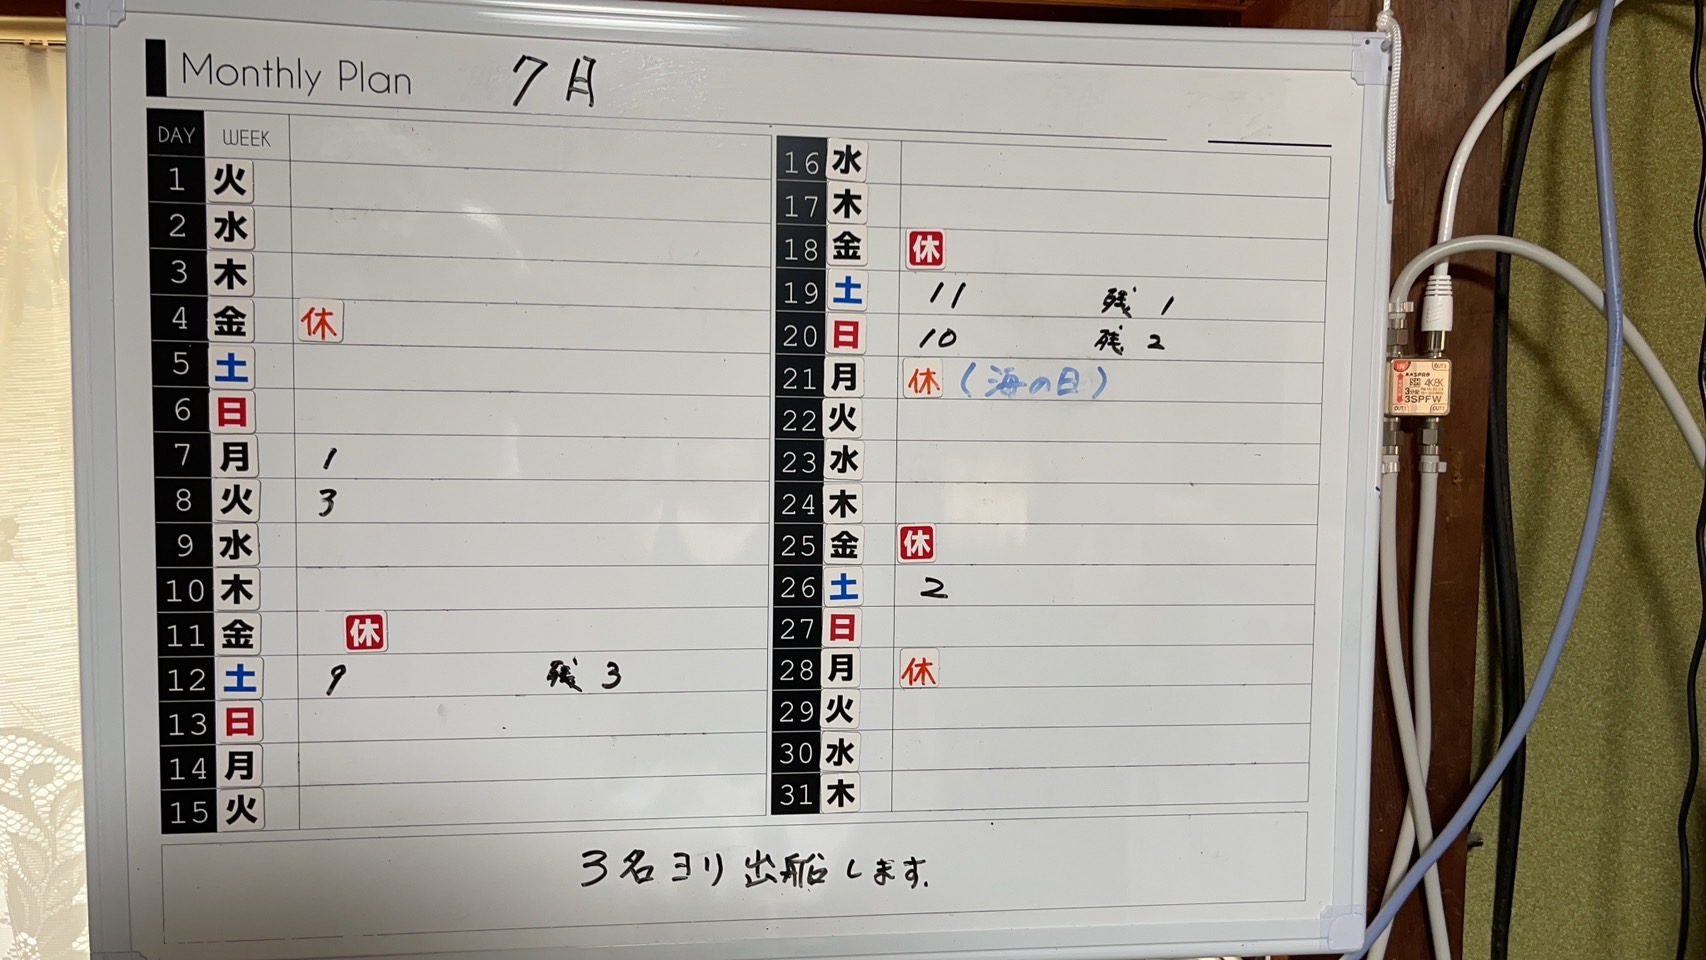 Monthly Plan 7月
DAY WEEK
1 火
2 水
3 木
4 金 休
5 土
6 日
7 月 1
8 火 3
9 水
10 木
11 金 休
12 土 9 残 3
13 日
14 月
15 火
16 水
17 木
18 金 休
19 土 11 残 1
20 日 10 残 2
21 月 休 (海の日)
22 火
23 水
24 木
25 金 休
26 土 2
27 日
28 月 休
29 火
30 水
31 木
3名ヨリ出船します.
4K8K
3SPFW